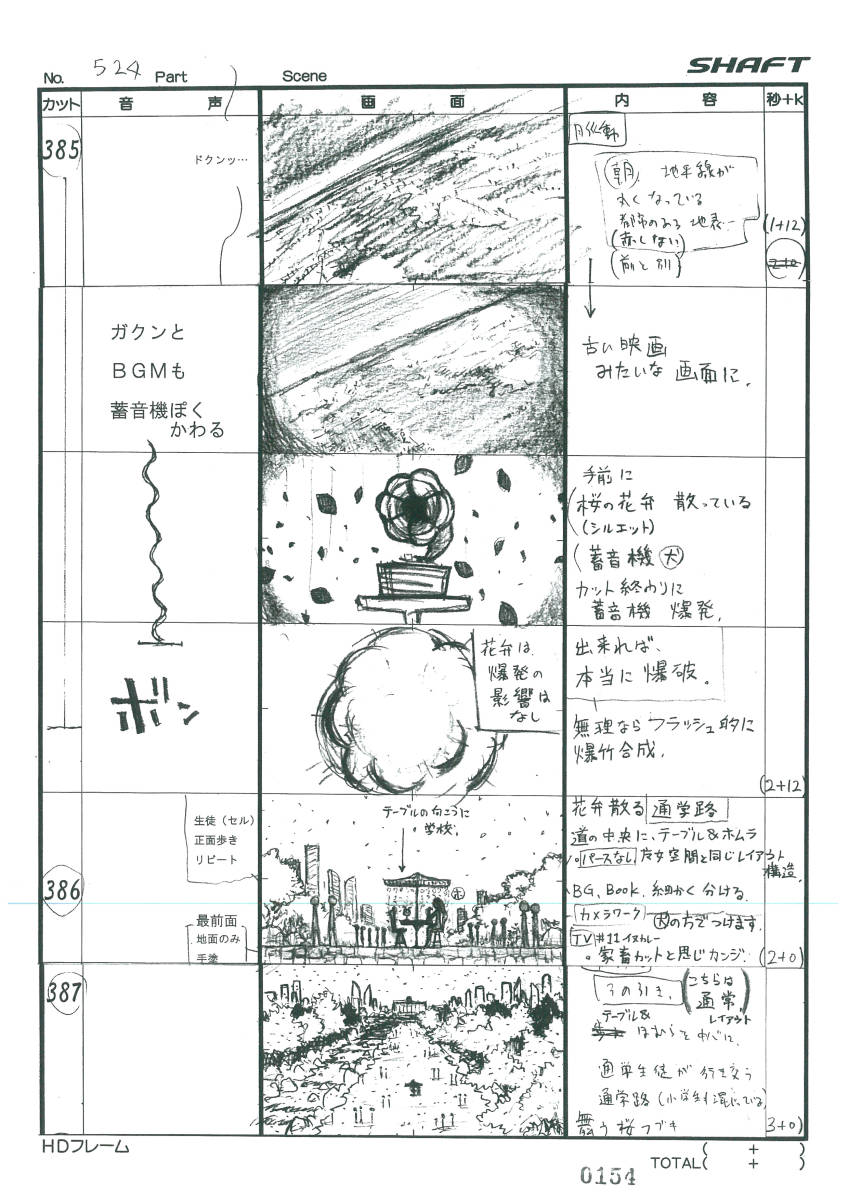 No. 524 Part Scene SHAFT
カット 音 声 画 面 内 容 秒+K
385
ドクンッ…
朝 地平線が
丸くなっている
都市のある 地表…
(赤しない)
(前と別)
(1+12)
2+0
ガクンと
BGMも
蓄音機ぽく
かわる
古い映画
みたいな 画面に.
手前に
桜の花弁 散っている
(シルエット)
蓄音機 犬
カット終わりに
蓄音機 爆発.
ボン
花弁は
爆発の
影響は
なし
出来れば、
本当に爆破。
無理なら フラッシュ的に
爆竹合成.
(2+12)
386
生徒(セル)
正面歩き
リピート
最前面
地面のみ
手塗
テーブルの向こうに
学校.
ホ
花弁散る 通学路
道の中央に、テーブル&ホムラ
パースなし 魔女空間と同じレイアウト
構造.
BG、Book、細かく分ける.
カメラワーク 犬の方でつけます.
TV #11 イヌカレー
。家畜カットと同じカンジ.
(2+0)
387
その引き. こちらは
通常
レイアウト
テーブル&
ほむらを中心に.
通学生徒が 行き交う
通学路 (小学生も混じっている)
舞う桜フブキ
3+0)
HDフレーム
( + )
TOTAL( + )
0154